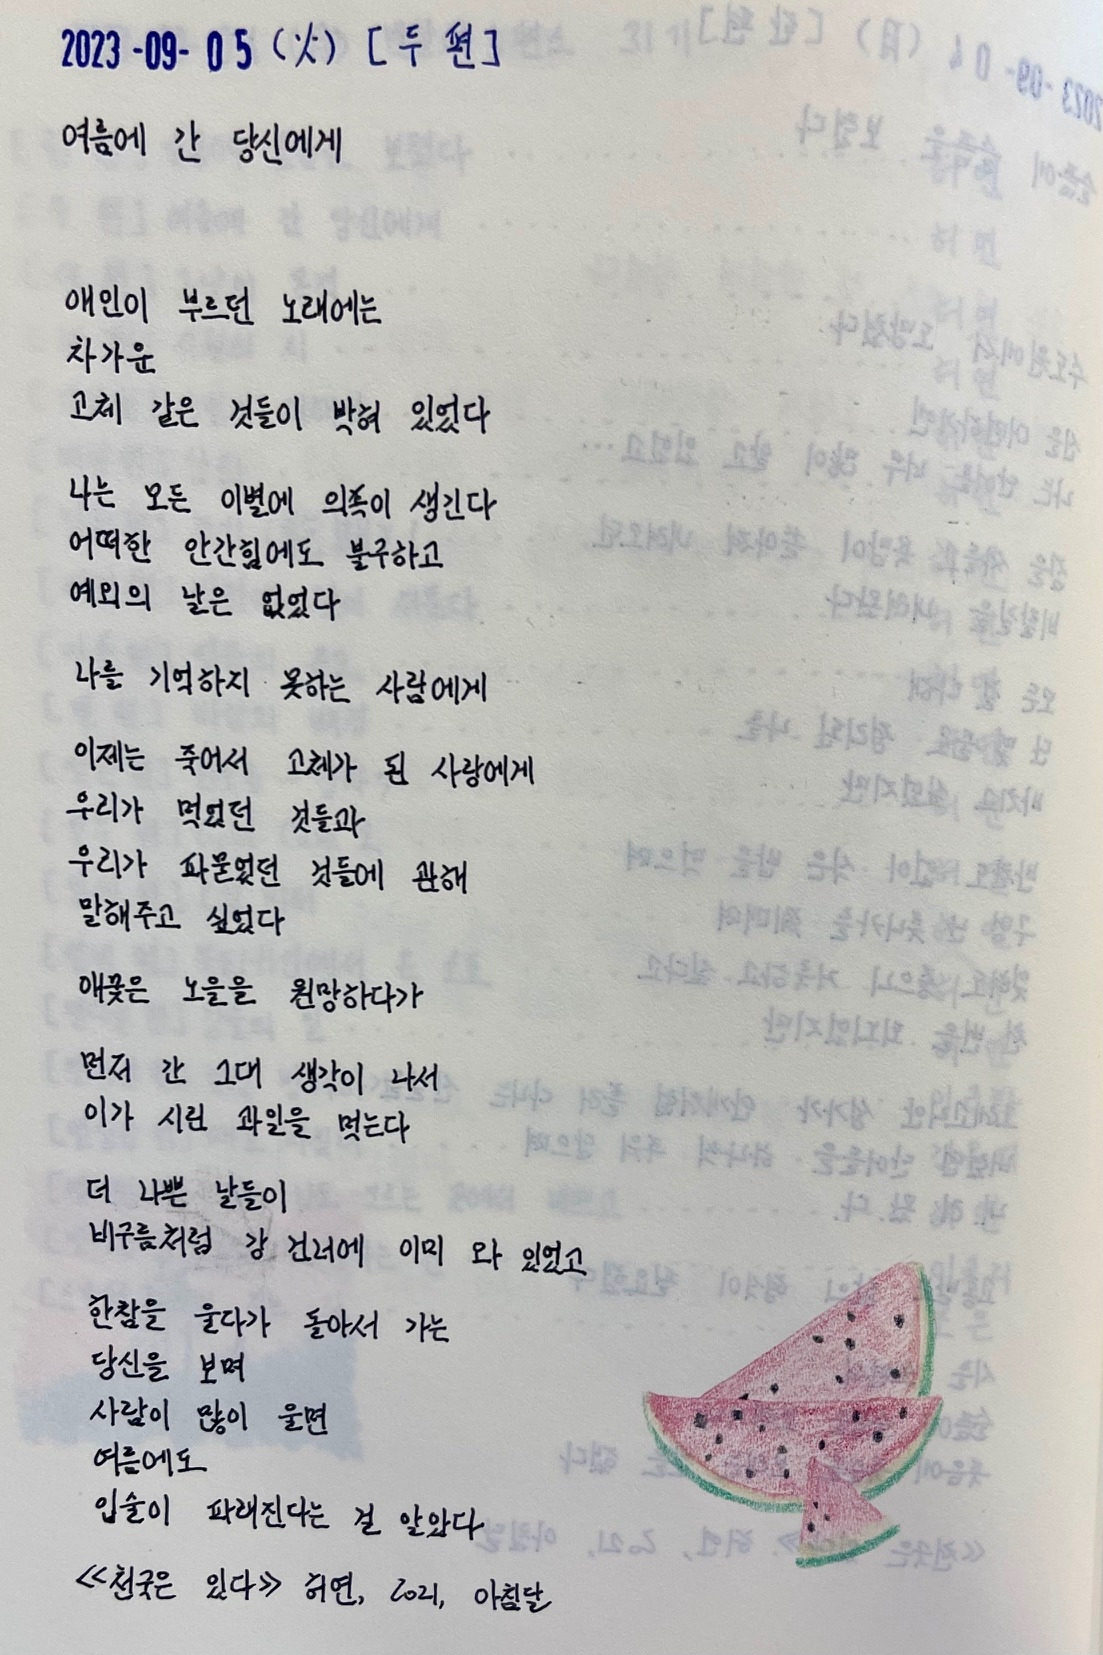 2023-09-05 (火) [두 편]
여름에 간 당신에게
애인이 부르던 노래에는
차가운
고체 같은 것들이 박혀 있었다
나는 모든 이별에 의족이 생긴다
어떠한 안간힘에도 불구하고
예외의 날은 없었다
나를 기억하지 못하는 사람에게
이제는 죽어서 고체가 된 사랑에게
우리가 먹었던 것들과
우리가 파묻었던 것들에 관해
말해주고 싶었다
애꿎은 노을을 원망하다가
먼저 간 그대 생각이 나서
이가 시린 과일을 먹는다
더 나쁜 날들이
비구름처럼 강 건너에 이미 와 있었고
한참을 울다가 돌아서 가는
당신을 보며
사람이 많이 울면
여름에도
입술이 파래진다는 걸 알았다
<<천국은 있다>> 허연, 2021, 아침달